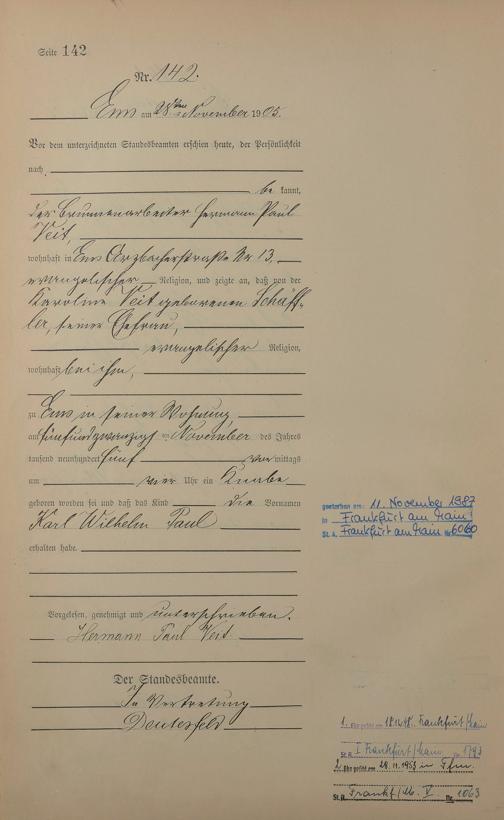 Seite 142
Nr. 142.
Ems am 28ten November 1905.
Vor dem unterzeichneten Standesbeamten erschien heute, der Persönlichkeit
nach
be kannt,
der Brunnenarbeiter Hermann Paul
Veit,
wohnhaft in Ems Arzbacherstraße Nr 13,
evangelischer Religion, und zeigte an, daß von der
Karoline Veit geborenen Schäff-
ler, seiner Ehefrau,
evangelischer Religion,
wohnhaft bei ihm,
zu Ems in seiner Wohnung
am fünfundzwanzigsten November des Jahres
tausend neunhundert fünf vor mittags
um vier Uhr ein Knabe
geboren worden sei und daß das Kind die Vornamen
Karl Wilhelm Paul
erhalten habe.
Vorgelesen, genehmigt und unterschrieben.
Hermann Paul Veit
Der Standesbeamte.
In Vertretung
gestorben am: 11. November 1987
in Frankfurt am Main
St. A. Frankfurt am Main Nr. 6060
1. Eheschl. am Frankfurt/Main
St.A. I Frankfurt/Main Nr.
2. Eheschl. am in Ffm.
St.A. Frankf./M. V. Nr. 1063